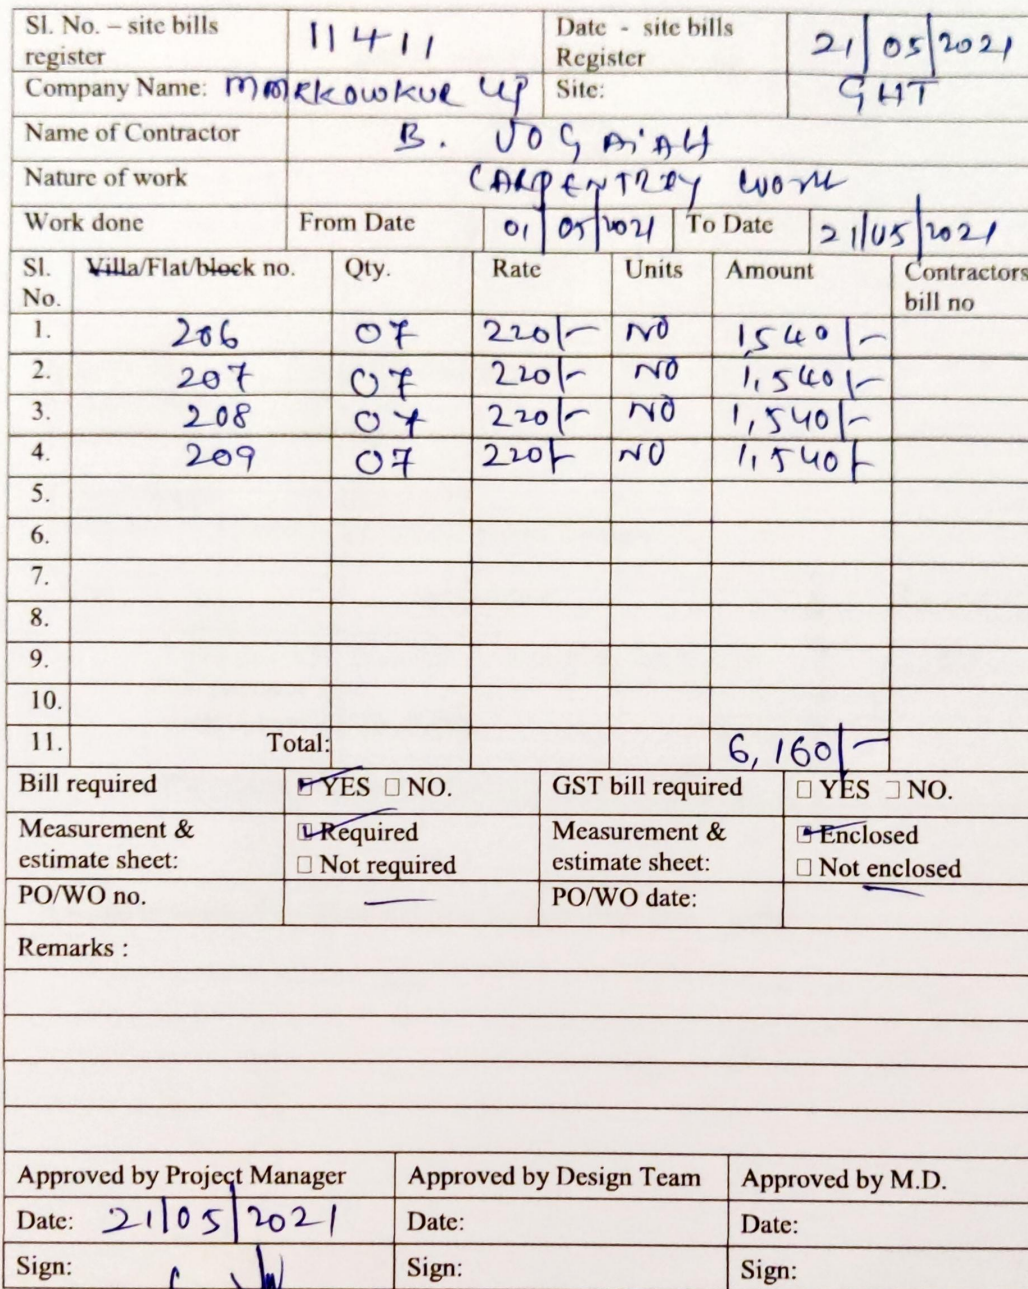 Sl. No. – site bills register 11411 Date - site bills Register 21/05/2021
Company Name: MMRKOWKUR LLP Site: GHT
Name of Contractor B. JOGAIAH
Nature of work CARPENTRY WORK
Work done From Date 01/05/2021 To Date 21/05/2021
Sl. No. Villa/Flat/block no. Qty. Rate Units Amount Contractors bill no
1. 206 07 220/- NO 1,540/-
2. 207 07 220/- NO 1,540/-
3. 208 07 220/- NO 1,540/-
4. 209 07 220/- NO 1,540/-
5.
6.
7.
8.
9.
10.
11. Total: 6,160/-
Bill required YES NO. GST bill required YES NO.
Measurement & estimate sheet: Required Not required Measurement & estimate sheet: Enclosed Not enclosed
PO/WO no. — PO/WO date: —
Remarks :
Approved by Project Manager Approved by Design Team Approved by M.D.
Date: 21/05/2021 Date: Date:
Sign: Sign: Sign: